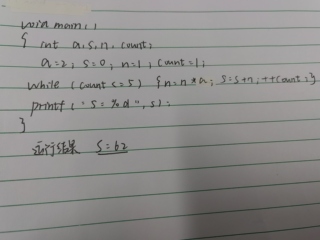 void main()
{ int a, s, n, count;
a=2; s=0; n=1; count=1;
while (count<=5) {n=n*a; s=s+n; ++count;}
printf("s=%d", s);
}
运行结果 s=62